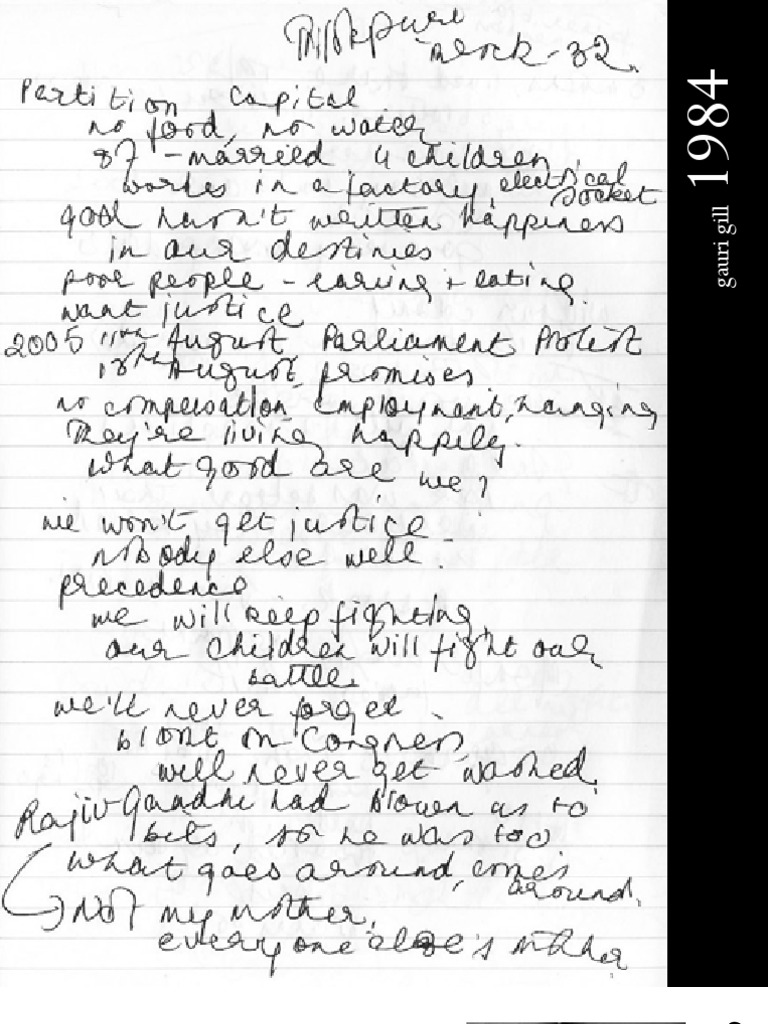 Trilokpuri
Block-32.
Partition Capital
no food, no water
87 - married 4 children,
works in a factory, electrical
socket
God hasn't written happiness
in our destinies
poor people - earning + eating.
want justice
2005 11th August, Parliament, Protest
18th August, promises
no compensation, employment, hanging
They're living happily.
what good are we?
we won't get justice
nobody else will.
precedence
we will keep fighting,
our children will fight our
battle.
we'll never forget
blot on Congress,
will never get washed.
Rajiv Gandhi had blown us to
bits, so he was too
what goes around, comes
around.
Not my mother,
everyone else's mother
1984
gauri gill